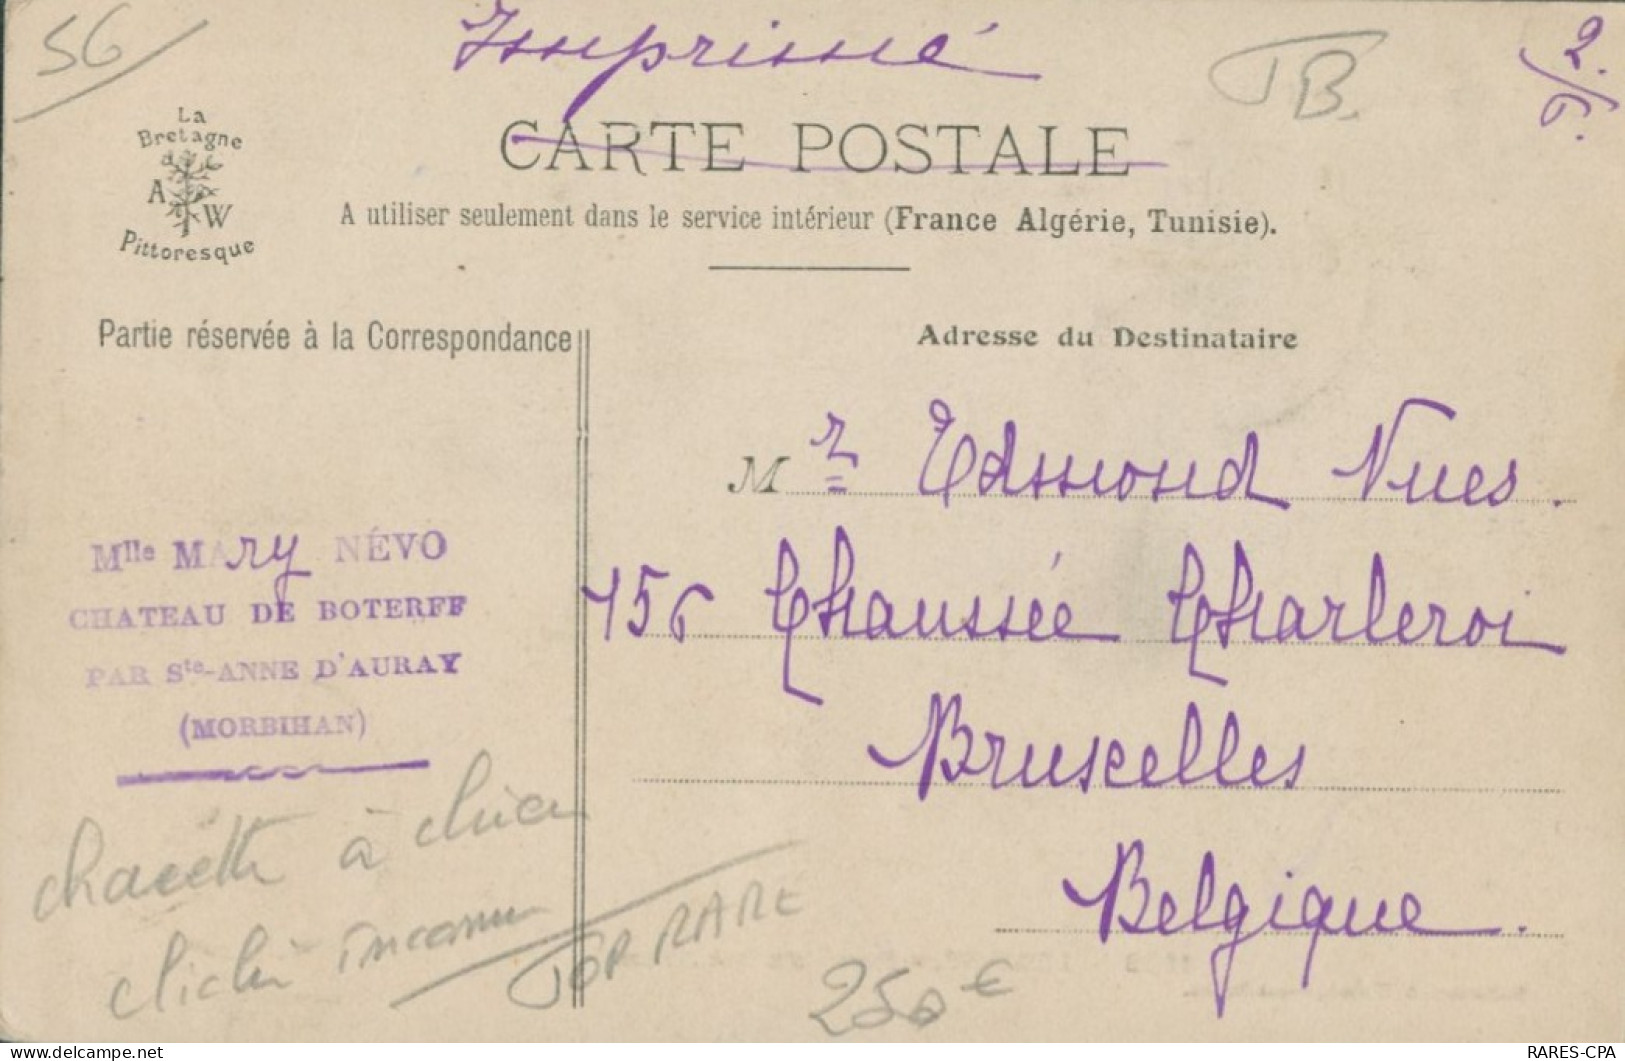 56
Imprimé
TB.
La
Bretagne
A W
Pittoresque
CARTE POSTALE
A utiliser seulement dans le service intérieur (France Algérie, Tunisie).
Partie réservée à la Correspondance
Adresse du Destinataire
Mr Edmond Nues.
156 Chaussée Charleroi
Bruxelles
Belgique.
Mlle Mary NÉVO
CHATEAU DE BOTERFF
PAR Ste-ANNE D'AURAY
(MORBIHAN)
à chien
cliché inconnu
TOP RARE
250€
RARES-CPA